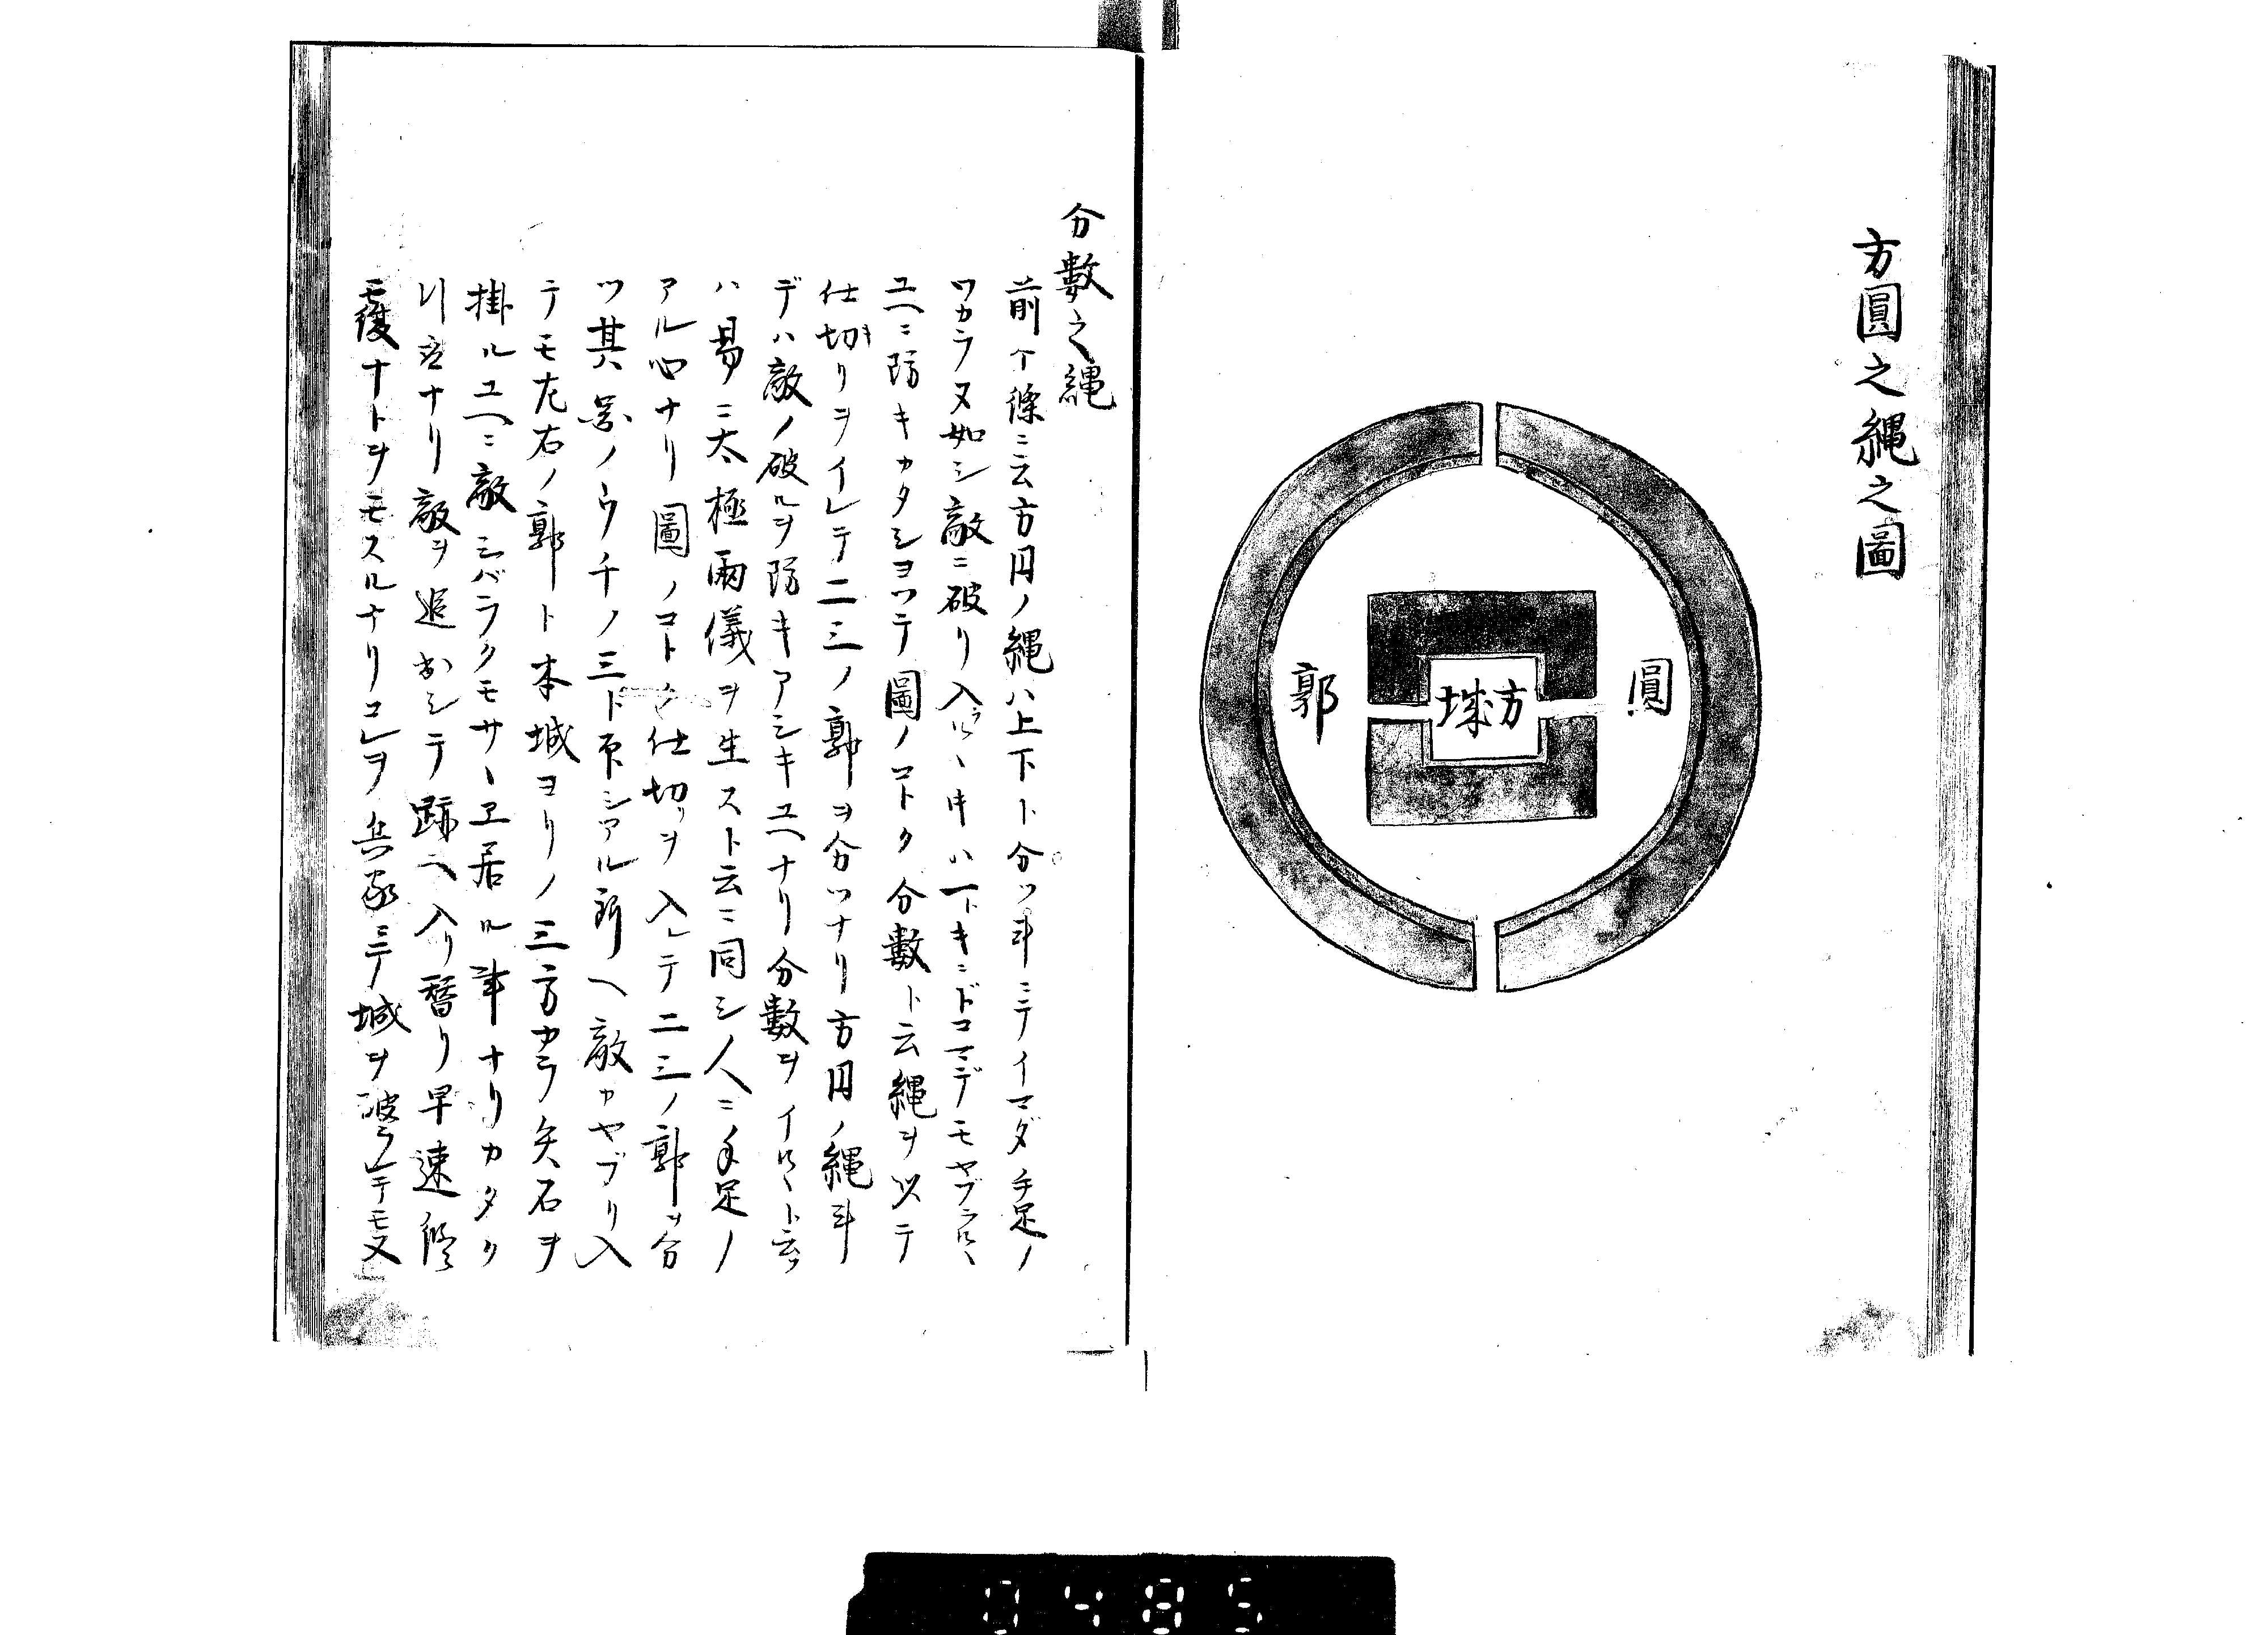 方圓之縄之圖
圓
方城
郭
分數之縄
前ケ條ニ云方円ノ縄ハ上下ト分ツ斗ニテイマダ手足ノ
ワカラヌ如シ敵ニ破リ入ラルヽ時ハ一トキニドコマデモヤブラルヽ
ユヘニ防キカタシヨツテ圖ノコトク分數ト云縄ヲ以テ
仕切リヲイレテ二三ノ郭ヲ分ツナリ方円ノ縄斗
デハ敵ノ破ルヲ防キアシキユヘナリ分數ヲイルヽト云
ハ易ニ太極兩儀ヲ生スト云ニ同シ人ニ手足ノ
アル心ナリ圖ノコトク仕切リヲ入レテ二三ノ郭ヲ分
ツ其ノウチノ三ト下シアル所ヘ敵カヤブリ入
テモ左右ノ郭ト本城ヨリノ三方カラ矢石ヲ
掛ルユヘニ敵シバラクモサヽエ居ル事ナリカタク
ナリ敵ヲ追出シテ跡ヘ入リ替リ早速修
復ナトヲモスルナリコレヲ兵家ニテ城ヲ破ラレテモ又